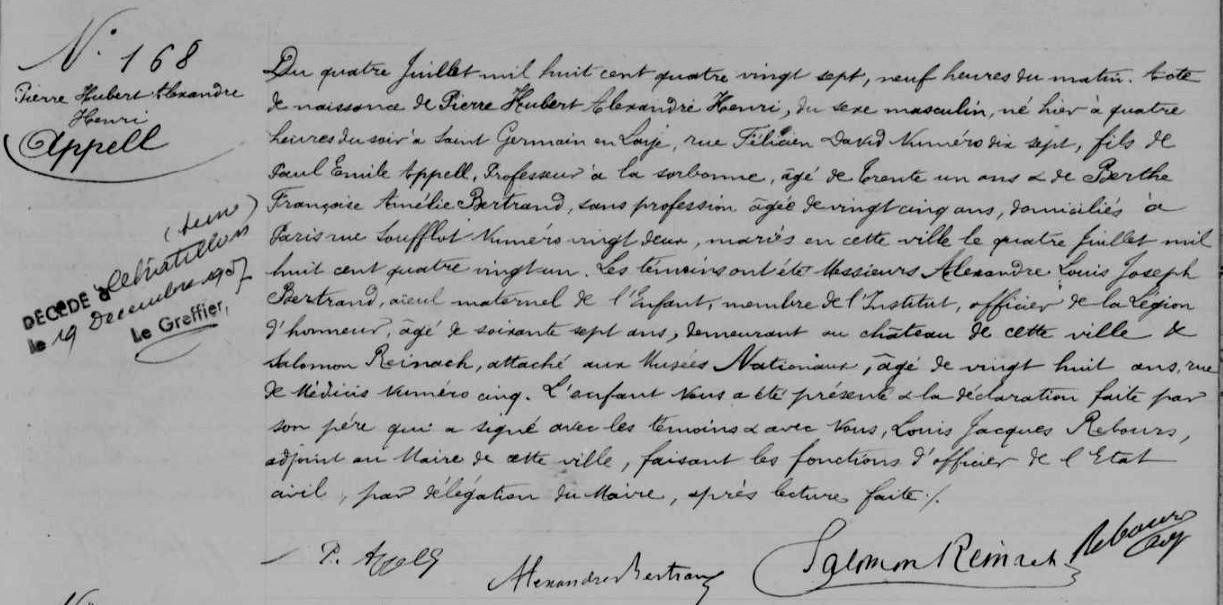 N° 168
Pierre Hubert Alexandre
Henri
Appell
DÉCÉDÉ à Chatillon
(Seine)
le 19 Décembre 1957
Le Greffier,
Du quatre Juillet mil huit cent quatre vingt sept, neuf heures du matin. Acte
de naissance de Pierre Hubert Alexandre Henri, du sexe masculin, né hier à quatre
heures du soir à Saint Germain en Laye, rue Félicien David Numéro dix sept, fils de
Paul Emile Appell, Professeur à la sorbonne, âgé de trente un ans & de Berthe
Françoise Amélie Bertrand, sans profession âgée de vingt cinq ans, domiciliés à
Paris rue Soufflot Numéro vingt deux, mariés en cette ville le quatre Juillet mil
huit cent quatre vingt un. Les témoins ont été Messieurs Alexandre Louis Joseph
Bertrand, aïeul maternel de l'Enfant, membre de l'Institut, officier de la Légion
d'honneur, âgé de soixante sept ans, demeurant au château de cette ville &
Salomon Reinach, attaché aux Musées Nationaux, âgé de vingt huit ans, rue
de Médicis Numéro cinq. L'enfant Nous a été présenté & la déclaration faite par
son père qui a signé avec les témoins & avec Nous, Louis Jacques Rebours,
adjoint au Maire de cette ville, faisant les fonctions d'officier de l'Etat
civil, par délégation du Maire, après lecture faite ./.
P. Appell
Alexandre Bertrand
Salomon Reinach
Rebours